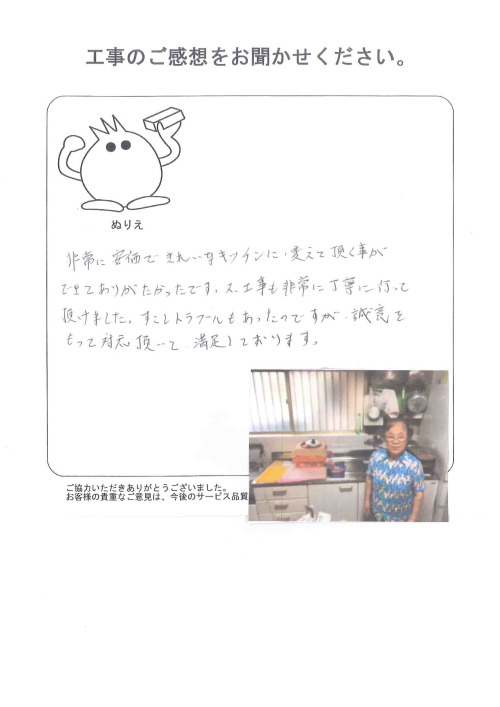 工事のご感想をお聞かせください。
ぬりえ
非常に安価できれいなキッチンに変えて頂く事が
できてありがたかったです。又、工事も非常に丁寧に行って
頂けました。すこしトラブルもあったのですが、誠意を
もって対応頂いて、満足しております。
ご協力いただきありがとうございました。
お客様の貴重なご意見は、今後のサービス品質